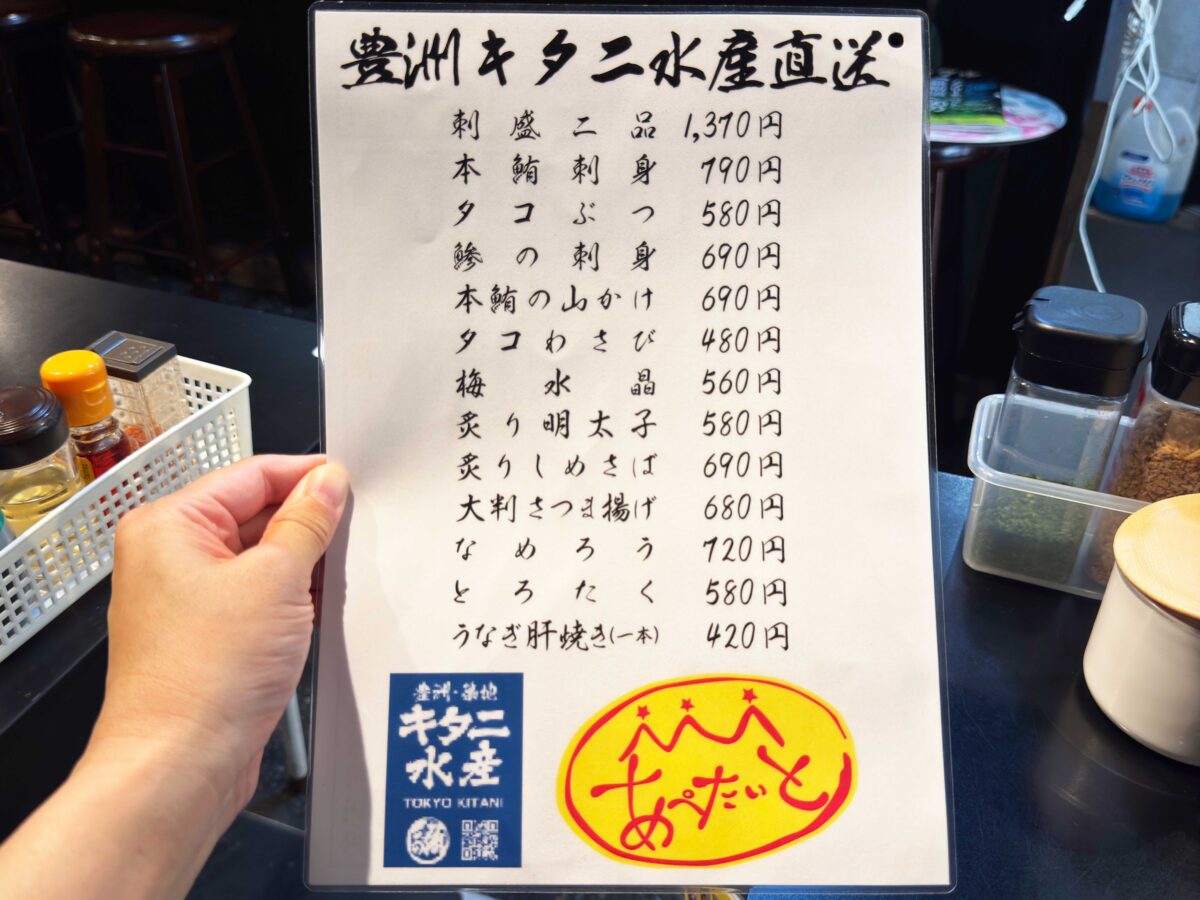 豊洲キタニ水産直送
刺盛二品 1,370円
本鮪刺身 790円
タコぶつ 580円
鯵の刺身 690円
本鮪の山かけ 690円
タコわさび 480円
梅水晶 560円
炙り明太子 580円
炙りしめさば 690円
大判さつま揚げ 680円
なめろう 720円
とろたく 580円
うなぎ肝焼き(一本) 420円
豊洲・築地
キタニ
水産
TOKYO KITANI
あぺたいと